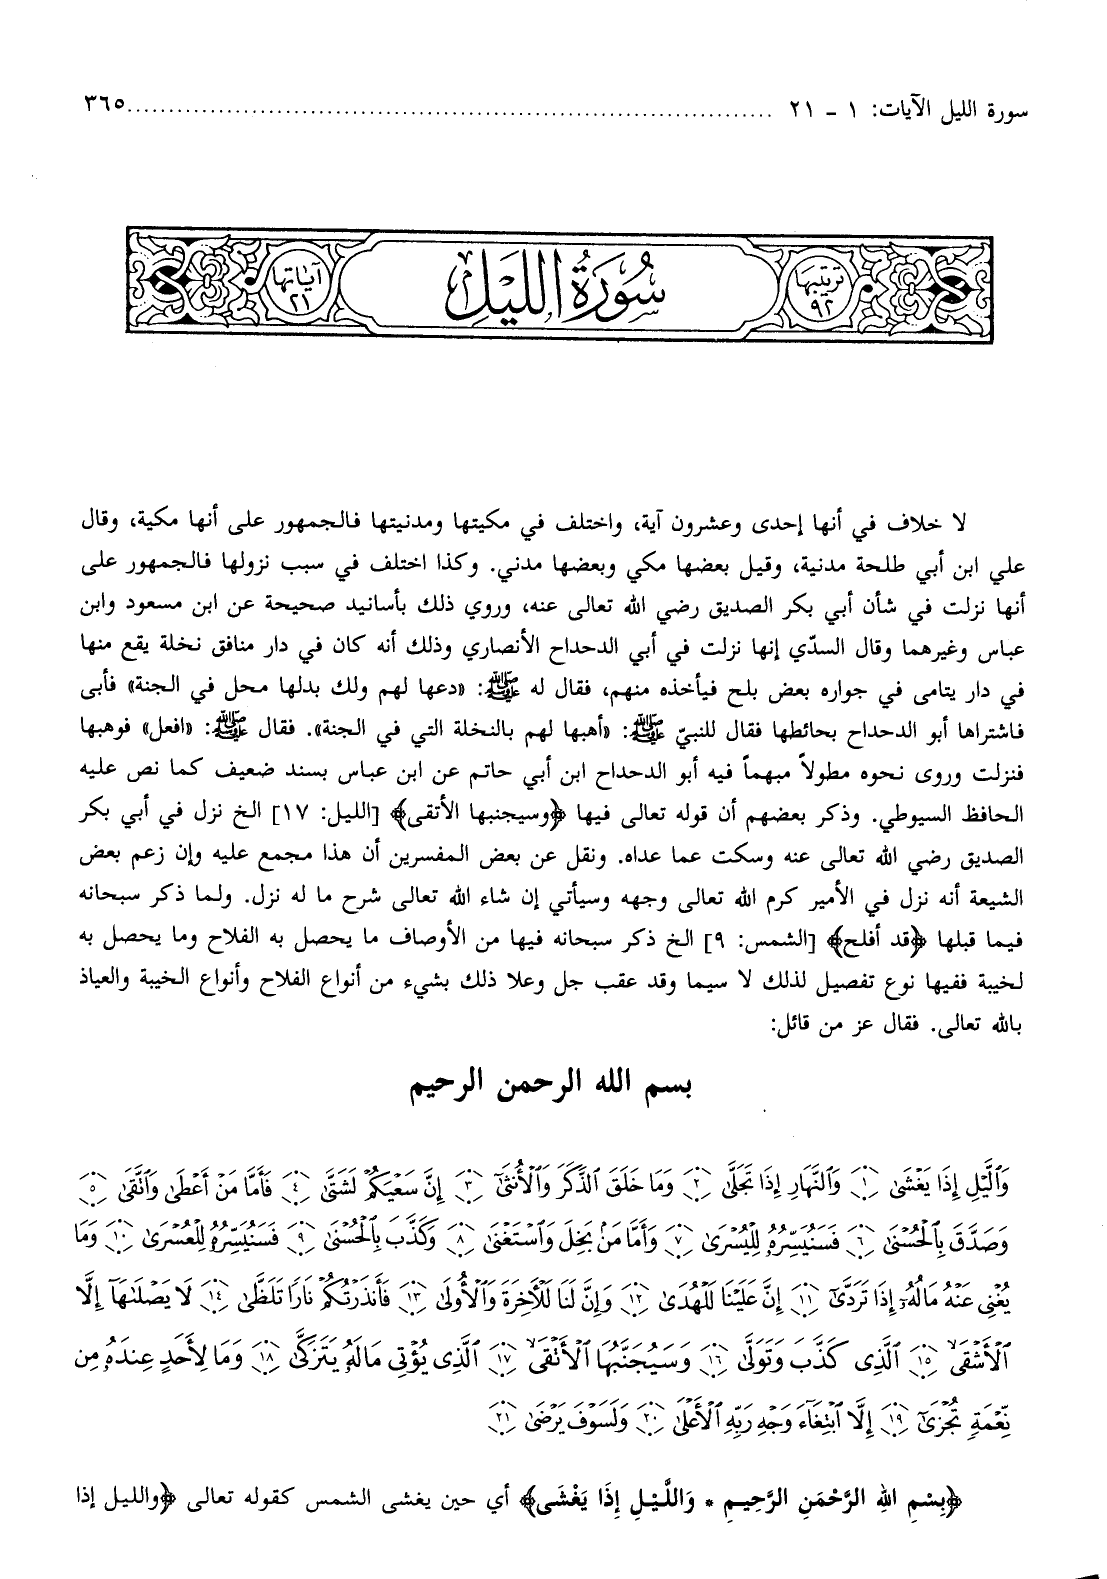 سورة الليل الآيات: ١ - ٢١ ........................................................................ ٣٦٥
ترتيبها ٩٢
سُورَةُ اللَّيْلِ
آياتها ٢١
لا خلاف في أنها إحدى وعشرون آية، واختلف في مكيتها ومدنيتها فالجمهور على أنها مكية، وقال
علي ابن أبي طلحة مدنية، وقيل بعضها مكي وبعضها مدني. وكذا اختلف في سبب نزولها فالجمهور على
أنها نزلت في شأن أبي بكر الصديق رضي الله تعالى عنه، وروي ذلك بأسانيد صحيحة عن ابن مسعود وابن
عباس وغيرهما وقال السدّي إنها نزلت في أبي الدحداح الأنصاري وذلك أنه كان في دار منافق نخلة يقع منها
في دار يتامى في جواره بعض بلح فيأخذه منهم، فقال له ﷺ: «دعها لهم ولك بدلها محل في الجنة» فأبى
فاشتراها أبو الدحداح بحائطها فقال للنبيّ ﷺ: «أهبها لهم بالنخلة التي في الجنة». فقال ﷺ: «افعل» فوهبها
فنزلت وروى نحوه مطولاً مبهماً فيه أبو الدحداح ابن أبي حاتم عن ابن عباس بسند ضعيف كما نص عليه
الحافظ السيوطي. وذكر بعضهم أن قوله تعالى فيها ﴿وسيجنبها الأتقى﴾ [الليل: ١٧] الخ نزل في أبي بكر
الصديق رضي الله تعالى عنه وسكت عما عداه. ونقل عن بعض المفسرين أن هذا مجمع عليه وإن زعم بعض
الشيعة أنه نزل في الأمير كرم الله تعالى وجهه وسيأتي إن شاء الله تعالى شرح ما له نزل. ولما ذكر سبحانه
فيما قبلها ﴿قد أفلح﴾ [الشمس: ٩] الخ ذكر سبحانه فيها من الأوصاف ما يحصل به الفلاح وما يحصل به
لخيبة ففيها نوع تفصيل لذلك لا سيما وقد عقب جل وعلا ذلك بشيء من أنواع الفلاح وأنواع الخيبة والعياذ
بالله تعالى. فقال عز من قائل:
بسم الله الرحمن الرحيم
وَٱلَّيْلِ إِذَا يَغْشَىٰ ١ وَٱلنَّهَارِ إِذَا تَجَلَّىٰ ٢ وَمَا خَلَقَ ٱلذَّكَرَ وَٱلْأُنثَىٰٓ ٣ إِنَّ سَعْيَكُمْ لَشَتَّىٰ ٤ فَأَمَّا مَنْ أَعْطَىٰ وَٱتَّقَىٰ ٥
وَصَدَّقَ بِٱلْحُسْنَىٰ ٦ فَسَنُيَسِّرُهُۥ لِلْيُسْرَىٰ ٧ وَأَمَّا مَنۢ بَخِلَ وَٱسْتَغْنَىٰ ٨ وَكَذَّبَ بِٱلْحُسْنَىٰ ٩ فَسَنُيَسِّرُهُۥ لِلْعُسْرَىٰ ١٠ وَمَا
يُغْنِى عَنْهُ مَالُهُۥٓ إِذَا تَرَدَّىٰٓ ١١ إِنَّ عَلَيْنَا لَلْهُدَىٰ ١٢ وَإِنَّ لَنَا لَلْءَاخِرَةَ وَٱلْأُولَىٰ ١٣ فَأَنذَرْتُكُمْ نَارًا تَلَظَّىٰ ١٤ لَا يَصْلَىٰهَآ إِلَّا
ٱلْأَشْقَى ١٥ ٱلَّذِى كَذَّبَ وَتَوَلَّىٰ ١٦ وَسَيُجَنَّبُهَا ٱلْأَتْقَى ١٧ ٱلَّذِى يُؤْتِى مَالَهُۥ يَتَزَكَّىٰ ١٨ وَمَا لِأَحَدٍ عِندَهُۥ مِن
نِّعْمَةٍ تُجْزَىٰٓ ١٩ إِلَّا ٱبْتِغَآءَ وَجْهِ رَبِّهِ ٱلْأَعْلَىٰ ٢٠ وَلَسَوْفَ يَرْضَىٰ ٢١
﴿بِسْمِ اللهِ الرَّحْمَنِ الرَّحِيمِ * وَاللَّيْلِ إِذَا يَغْشَى﴾ أي حين يغشى الشمس كقوله تعالى ﴿والليل إذا